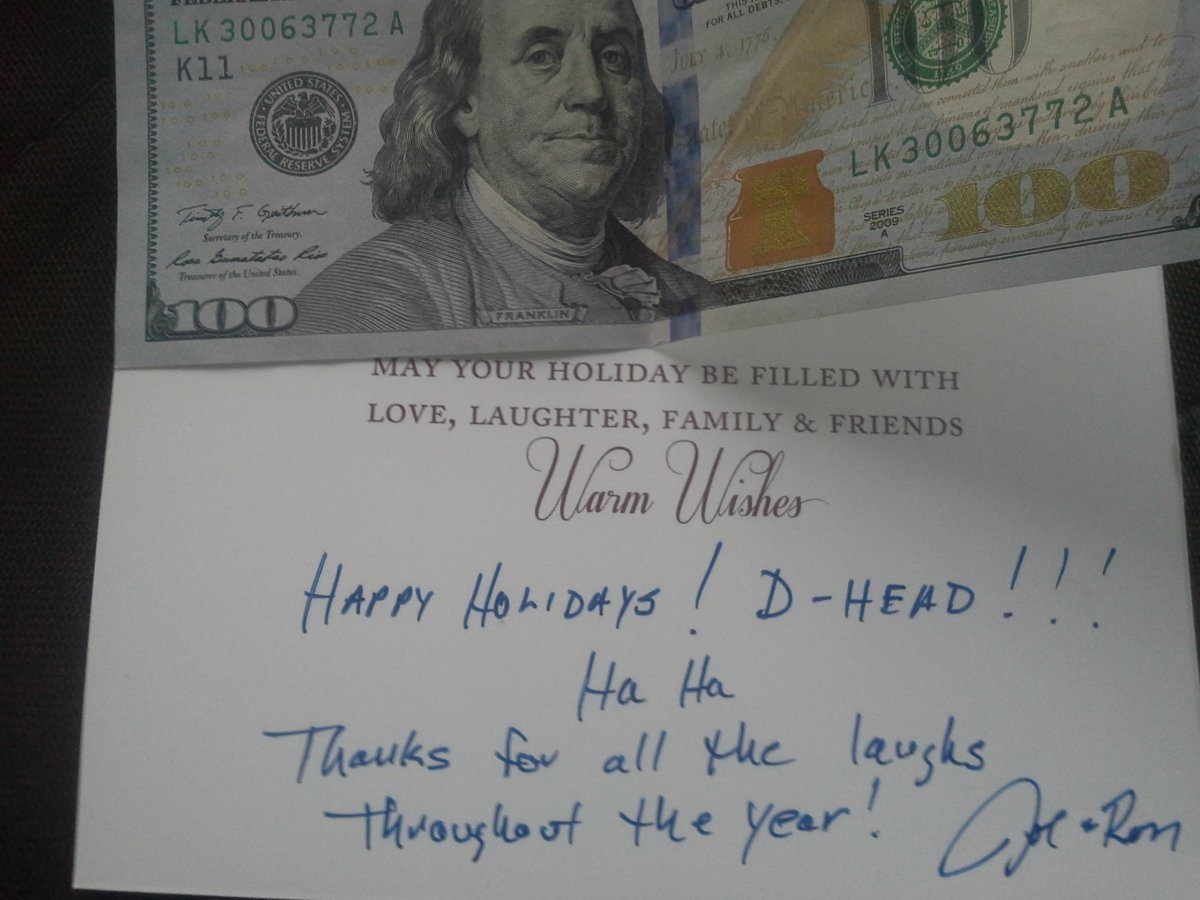 LK 30063772 A
K11
UNITED STATES FEDERAL RESERVE SYSTEM
Secretary of the Treasury.
Treasurer of the United States.
100
FRANKLIN
FOR ALL DEBTS,
JULY 4, 1776
LK 30063772 A
SERIES
2009
A
100
MAY YOUR HOLIDAY BE FILLED WITH
LOVE, LAUGHTER, FAMILY & FRIENDS
Warm Wishes
HAPPY HOLIDAYS! D-HEAD!!!
Ha Ha
Thanks for all the laughs
throughout the year!
Joe + Ron